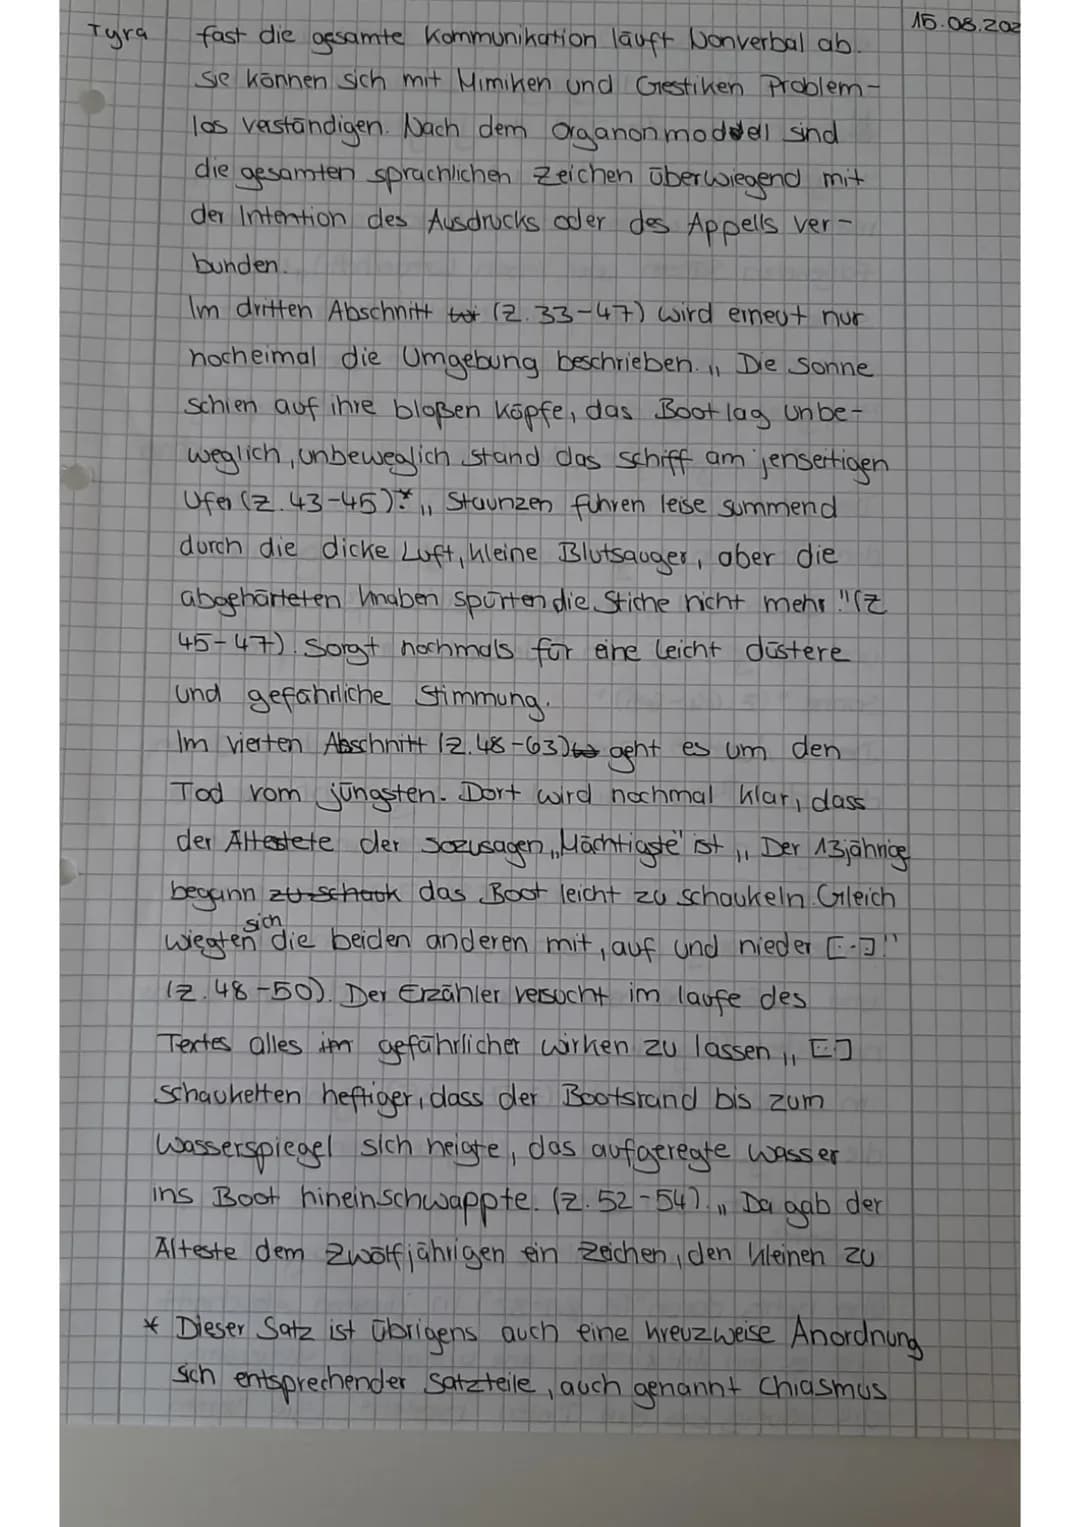 Tyra
15.08.202
fast die gesamte Kommunikation läuft Nonverbal ab.
sie können sich mit Mimiken und Gestiken Problem-
los verständigen. Nach dem Organonmodell sind
die gesamten sprachlichen Zeichen überwiegend mit
der Intention des Ausdrucks oder des Appells ver-
bunden.
Im dritten Abschnitt (Z. 33-47) wird erneut nur
nocheimal die Umgebung beschrieben. „Die Sonne
schien auf ihre bloßen Köpfe, das Boot lag unbe-
weglich, unbeweglich stand das schiff am jenseitigen
Ufer (Z. 43-45)".* „Staunzen fuhren leise summend
durch die dicke Luft, kleine Blutsauger, aber die
abgehärteten Knaben spürten die Stiche nicht mehr." (Z
45-47). Sorgt nochmals für eine leicht düstere
und gefährliche Stimmung.
Im vierten Abschnitt (Z. 48-63) geht es um den
Tod vom jüngsten. Dort wird nochmal klar, dass
der Ältestete der sozusagen „Mächtigste" ist „Der 13jährige
begann zu schauk das Boot leicht zu schaukeln. Gleich
wiegten sich die beiden anderen mit, auf und nieder [...]"
(Z. 48-50). Der Erzähler versucht im laufe des
Textes alles im gefährlicher wirken zu lassen „[...]
schaukelten heftiger, dass der Bootsrand bis zum
Wasserspiegel sich neigte, das aufgeregte wasser
ins Boot hineinschwappte. (Z. 52-54). „Da gab der
Älteste dem Zwölfjährigen ein Zeichen, den kleinen zu
* Dieser Satz ist übrigens auch eine kreuzweise Anordnung
sich entsprechender Satzteile, auch genannt Chiasmus